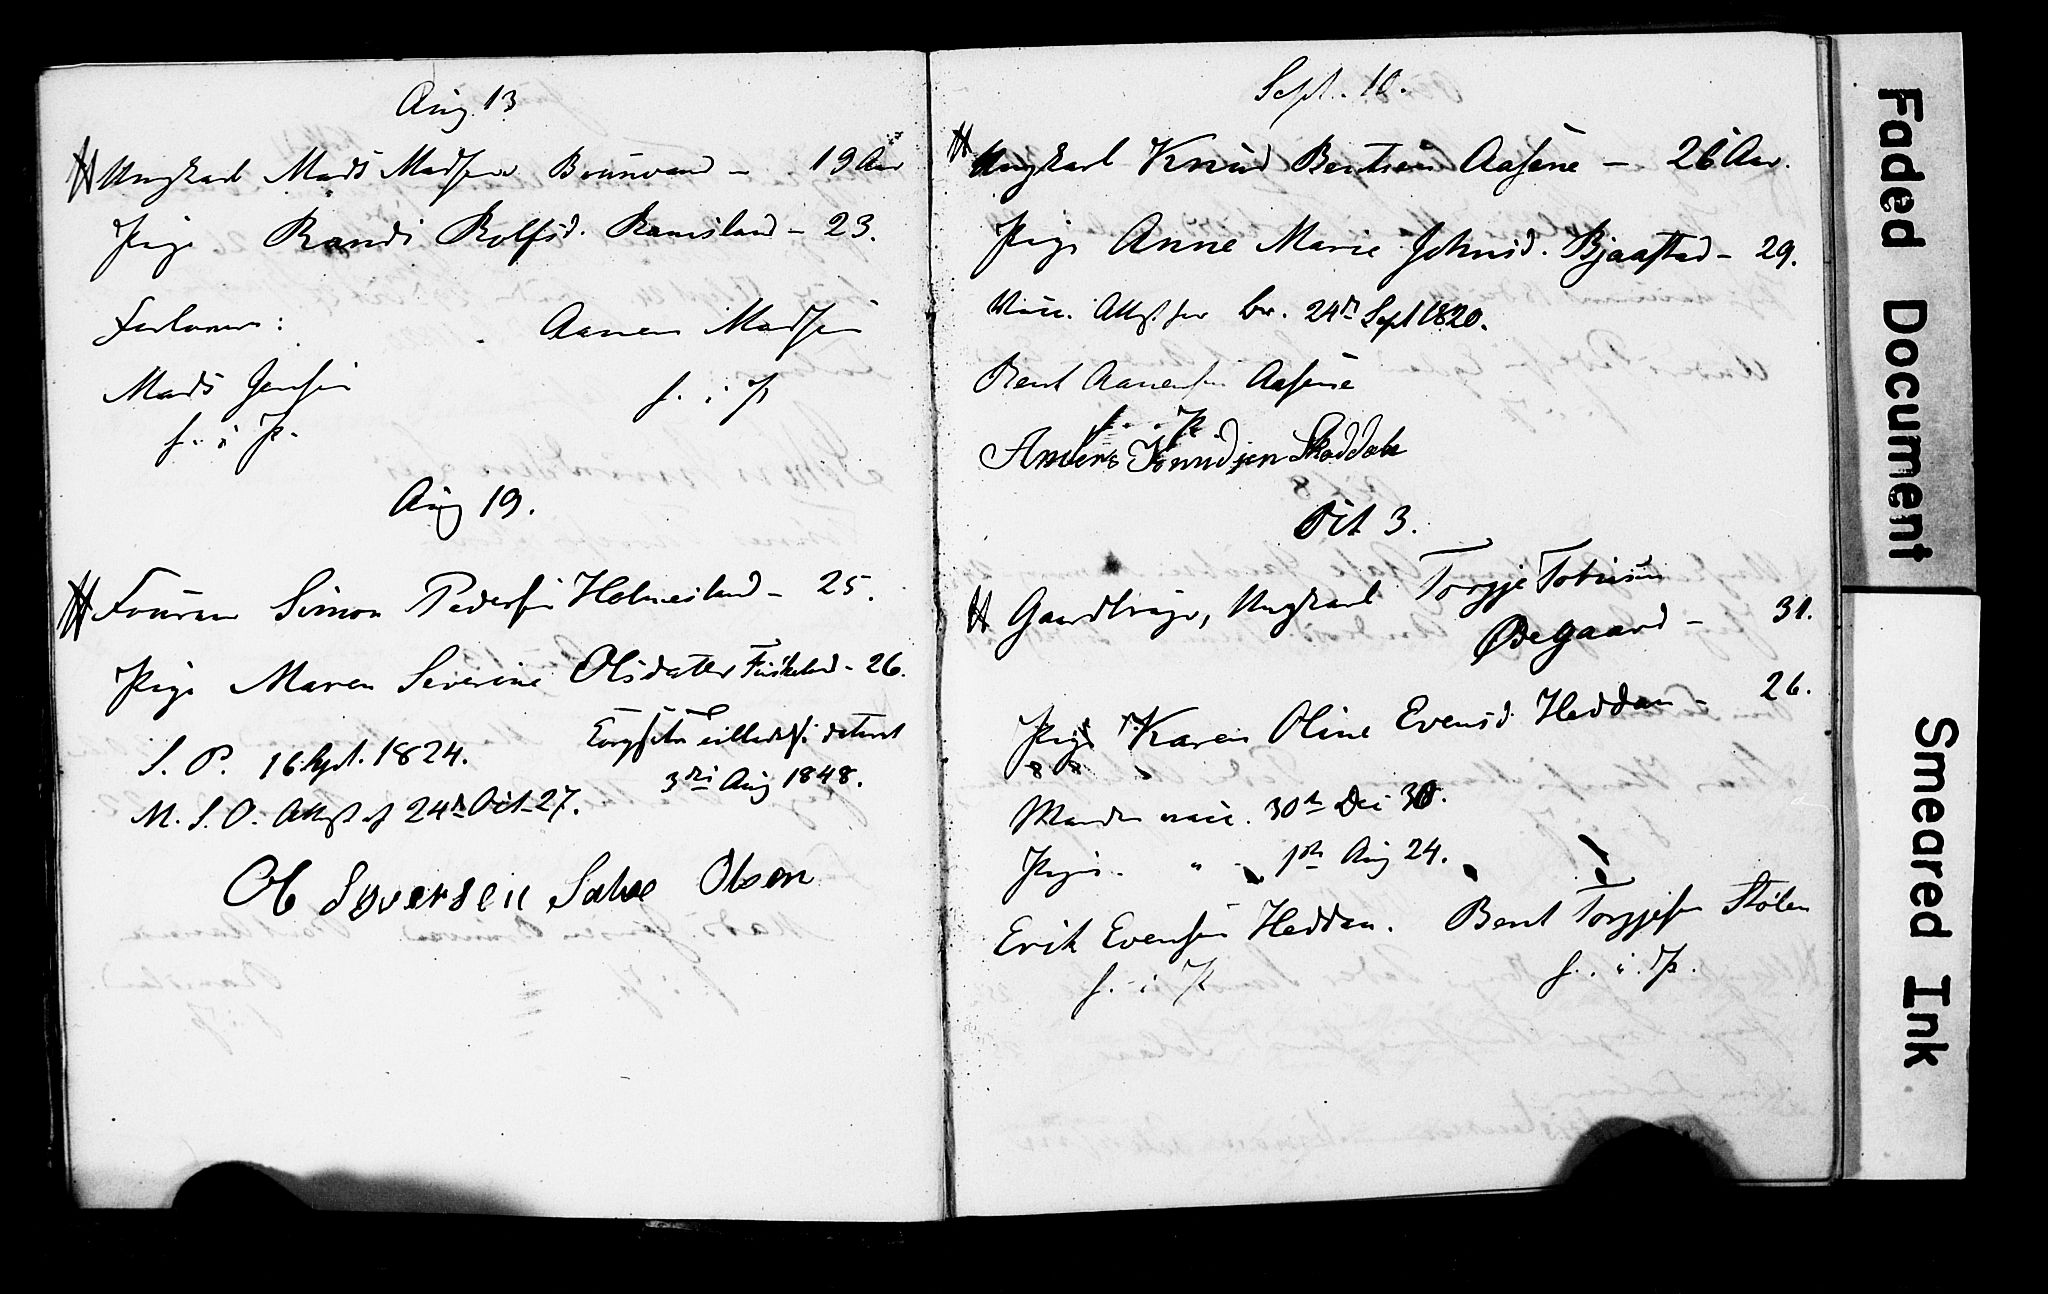 Aug 13
Ungkarl Mads Madsen Brunvand - 19 Aar
Pige Randi Rolfsd. Ramsland - 23.
Forlovere:
Aanen Madsen
Mads Jensen
f. i P.
f. i P.
Aug 19.
Simon Pedersen Holmesland - 25.
Pige Maren Severine Olsdatter Fuskeland - 26.
S. P. 16 Sept. 1824.
dateret
3die Aug 1848.
M. S. O. Attest af 24de Oct 27.
Ole Syversen Salve Olsen
Sept. 10.
Ungkarl Knud Bentsen Aasene - 26 Aar.
Pige Anne Marie Johnsd. Bjaastad - 29.
Vacc. Attest for br. 24de Sept 1820.
Bent Aanensen Aasene
f. i P.
Anders Knudsen Skoddale
Oct 3.
Gaardbruger, Ungkarl Torgje Tobiesen
Ødegaard - 31.
Pige Karen Oline Evensd. Heddan - 26.
Manden vacc. 30te Dec 30.
Pigen " 1ste Aug 24.
Erik Evensen Heddan. Bent Torgjesen Stølen
f. i P.
f. i P.
Faded Document
Smeared Ink